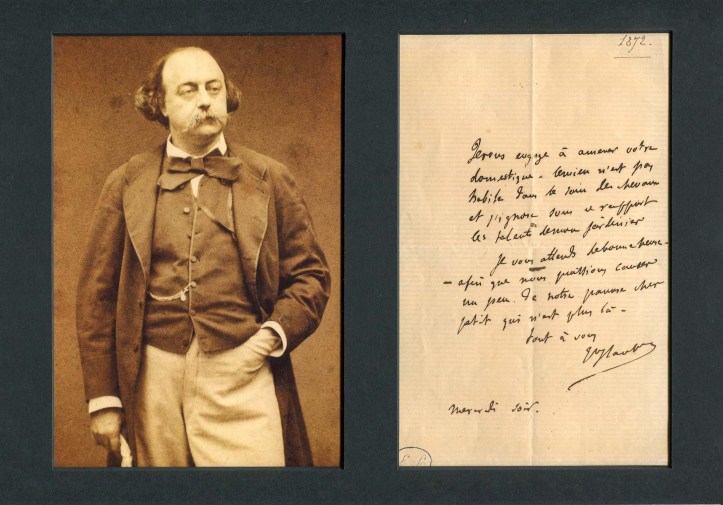 1872.
Je vous engage à amener votre
domestique - le mien n'est pas
habile dans le soin des chevaux
et j'ignore sous ce rapport
les talents de mon jardinier
Je vous attends de bonne heure -
- afin que nous puissions causer
un peu. de notre pauvre cher
petit qui n'est plus là -
tout à vous
GveFlaubert
mercredi soir.